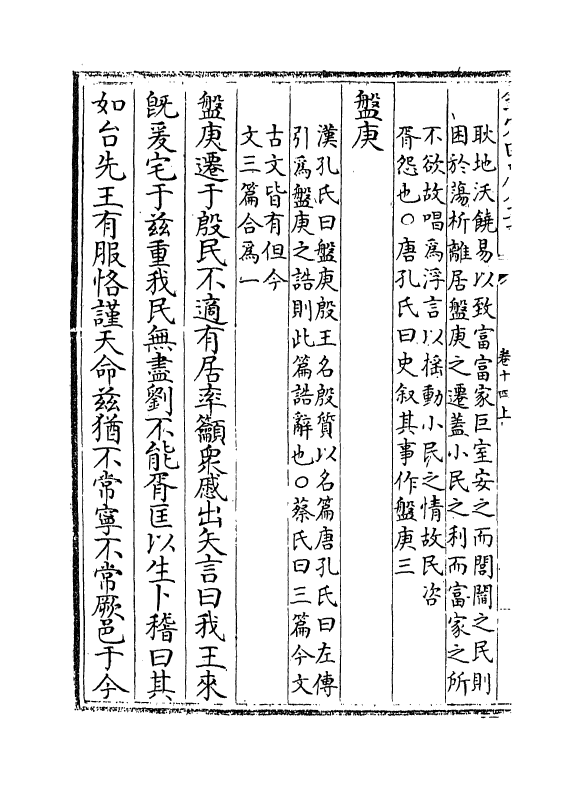 卷十四上
耿地沃饒易以致富富家巨室安之而閭閻之民則
困於蕩析離居盤庚之遷蓋小民之利而富家之所
不欲故唱為浮言以搖動小民之情故民咨
胥怨也○唐孔氏曰史叙其事作盤庚三
盤庚
漢孔氏曰盤庚殷王名殷質以名篇唐孔氏曰左傳
引為盤庚之誥則此篇誥辭也○蔡氏曰三篇今文
古文皆有但今
文三篇合為一
盤庚遷于殷民不適有居率籲衆慼出矢言曰我王來
旣爰宅于兹重我民無盡劉不能胥匡以生卜稽曰其
如台先王有服恪謹天命兹猶不常寧不常厥邑于今